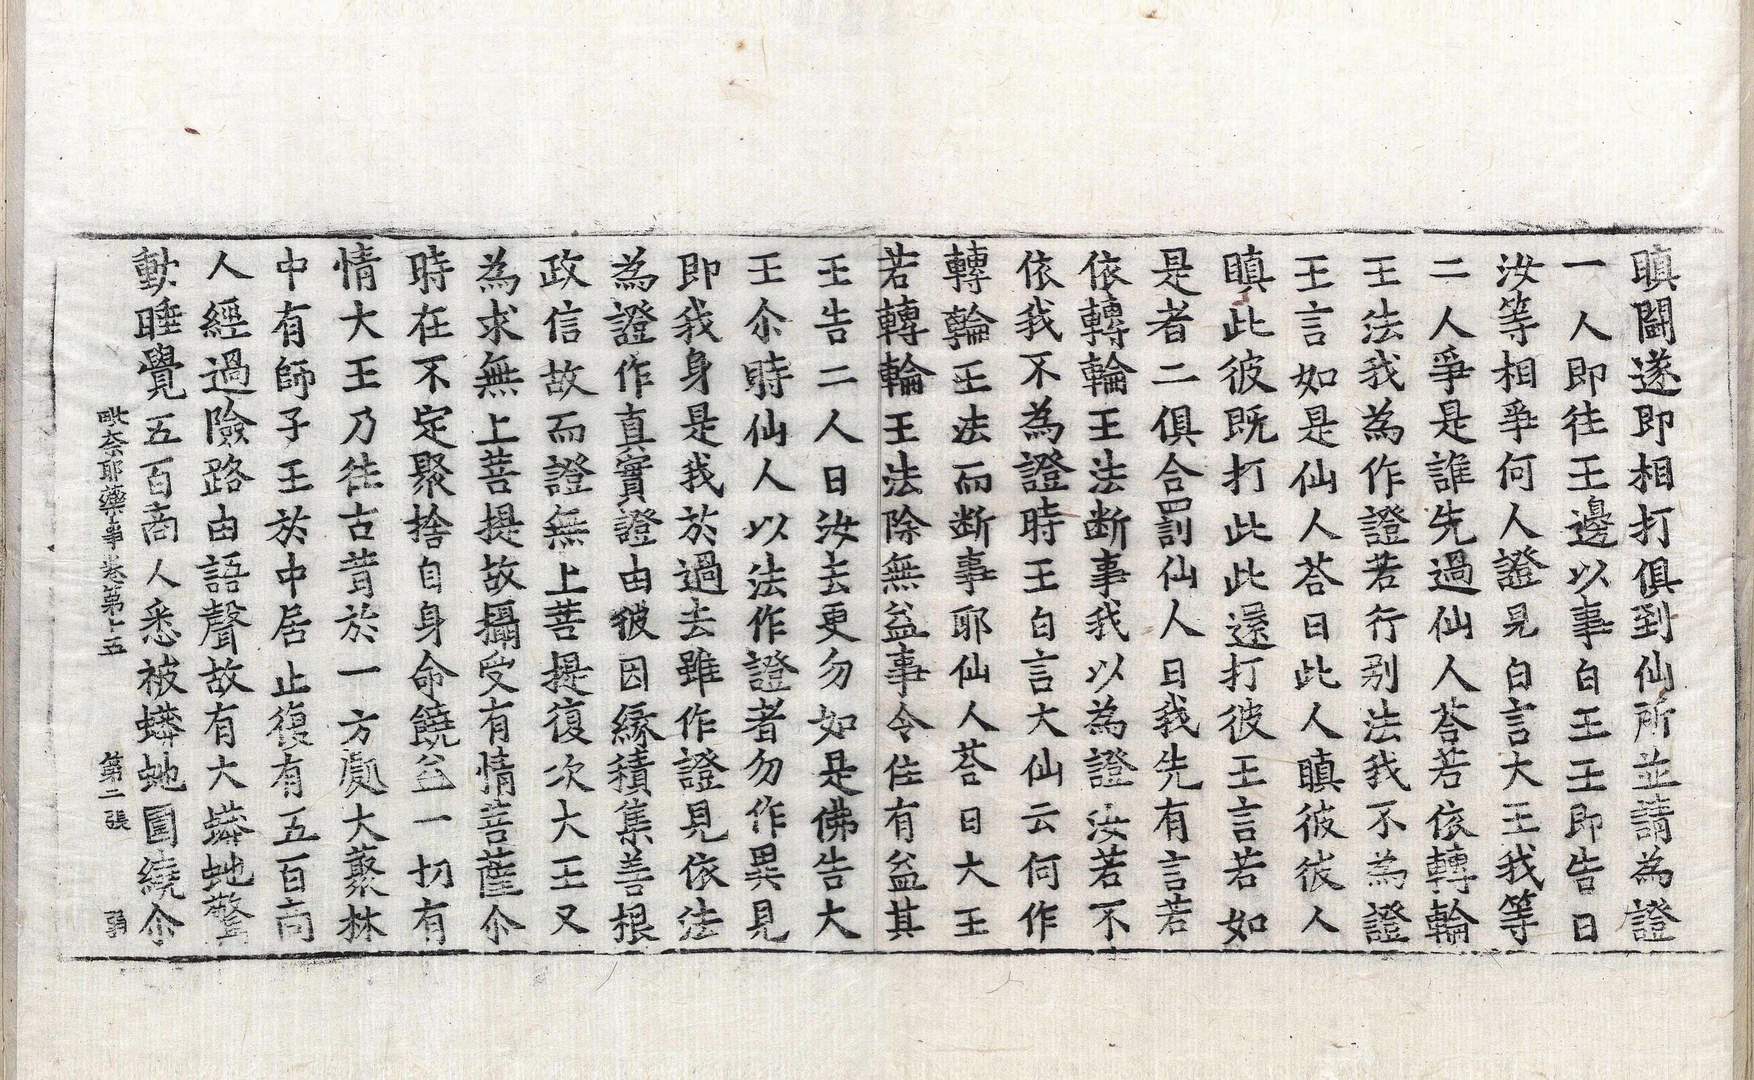 瞋鬪遂即相打俱到仙所並請為證
一人即往王邊以事白王王即告曰
汝等相爭何人證見白言大王我等
二人爭是誰先過仙人荅若依轉輪
王法我為作證若行别法我不為證
王言如是仙人荅曰此人瞋彼彼人
瞋此彼既打此此還打彼王言若如
是者二俱合罰仙人曰我先有言若
依轉輪王法断事我以為證汝若不
依我不為證時王白言大仙云何作
轉輪王法而断事耶仙人荅曰大王
若轉輪王法除無益事令住有益其
王告二人曰汝去更勿如是佛告大
王尒時仙人以法作證者勿作異見
即我身是我於過去雖作證見依法
為證作真實證由彼因縁積集善根
政信故而證無上菩提復次大王又
為求無上菩提故攝受有情菩薩尒
時在不定聚捨自身命饒益一切有
情大王乃往古昔於一方處大藂林
中有師子王於中居止復有五百商
人經過險路由語聲故有大蟒虵驚
動睡覺五百商人悉被蟒虵圍繞尒
毗奈耶藥事卷第十五 第二張